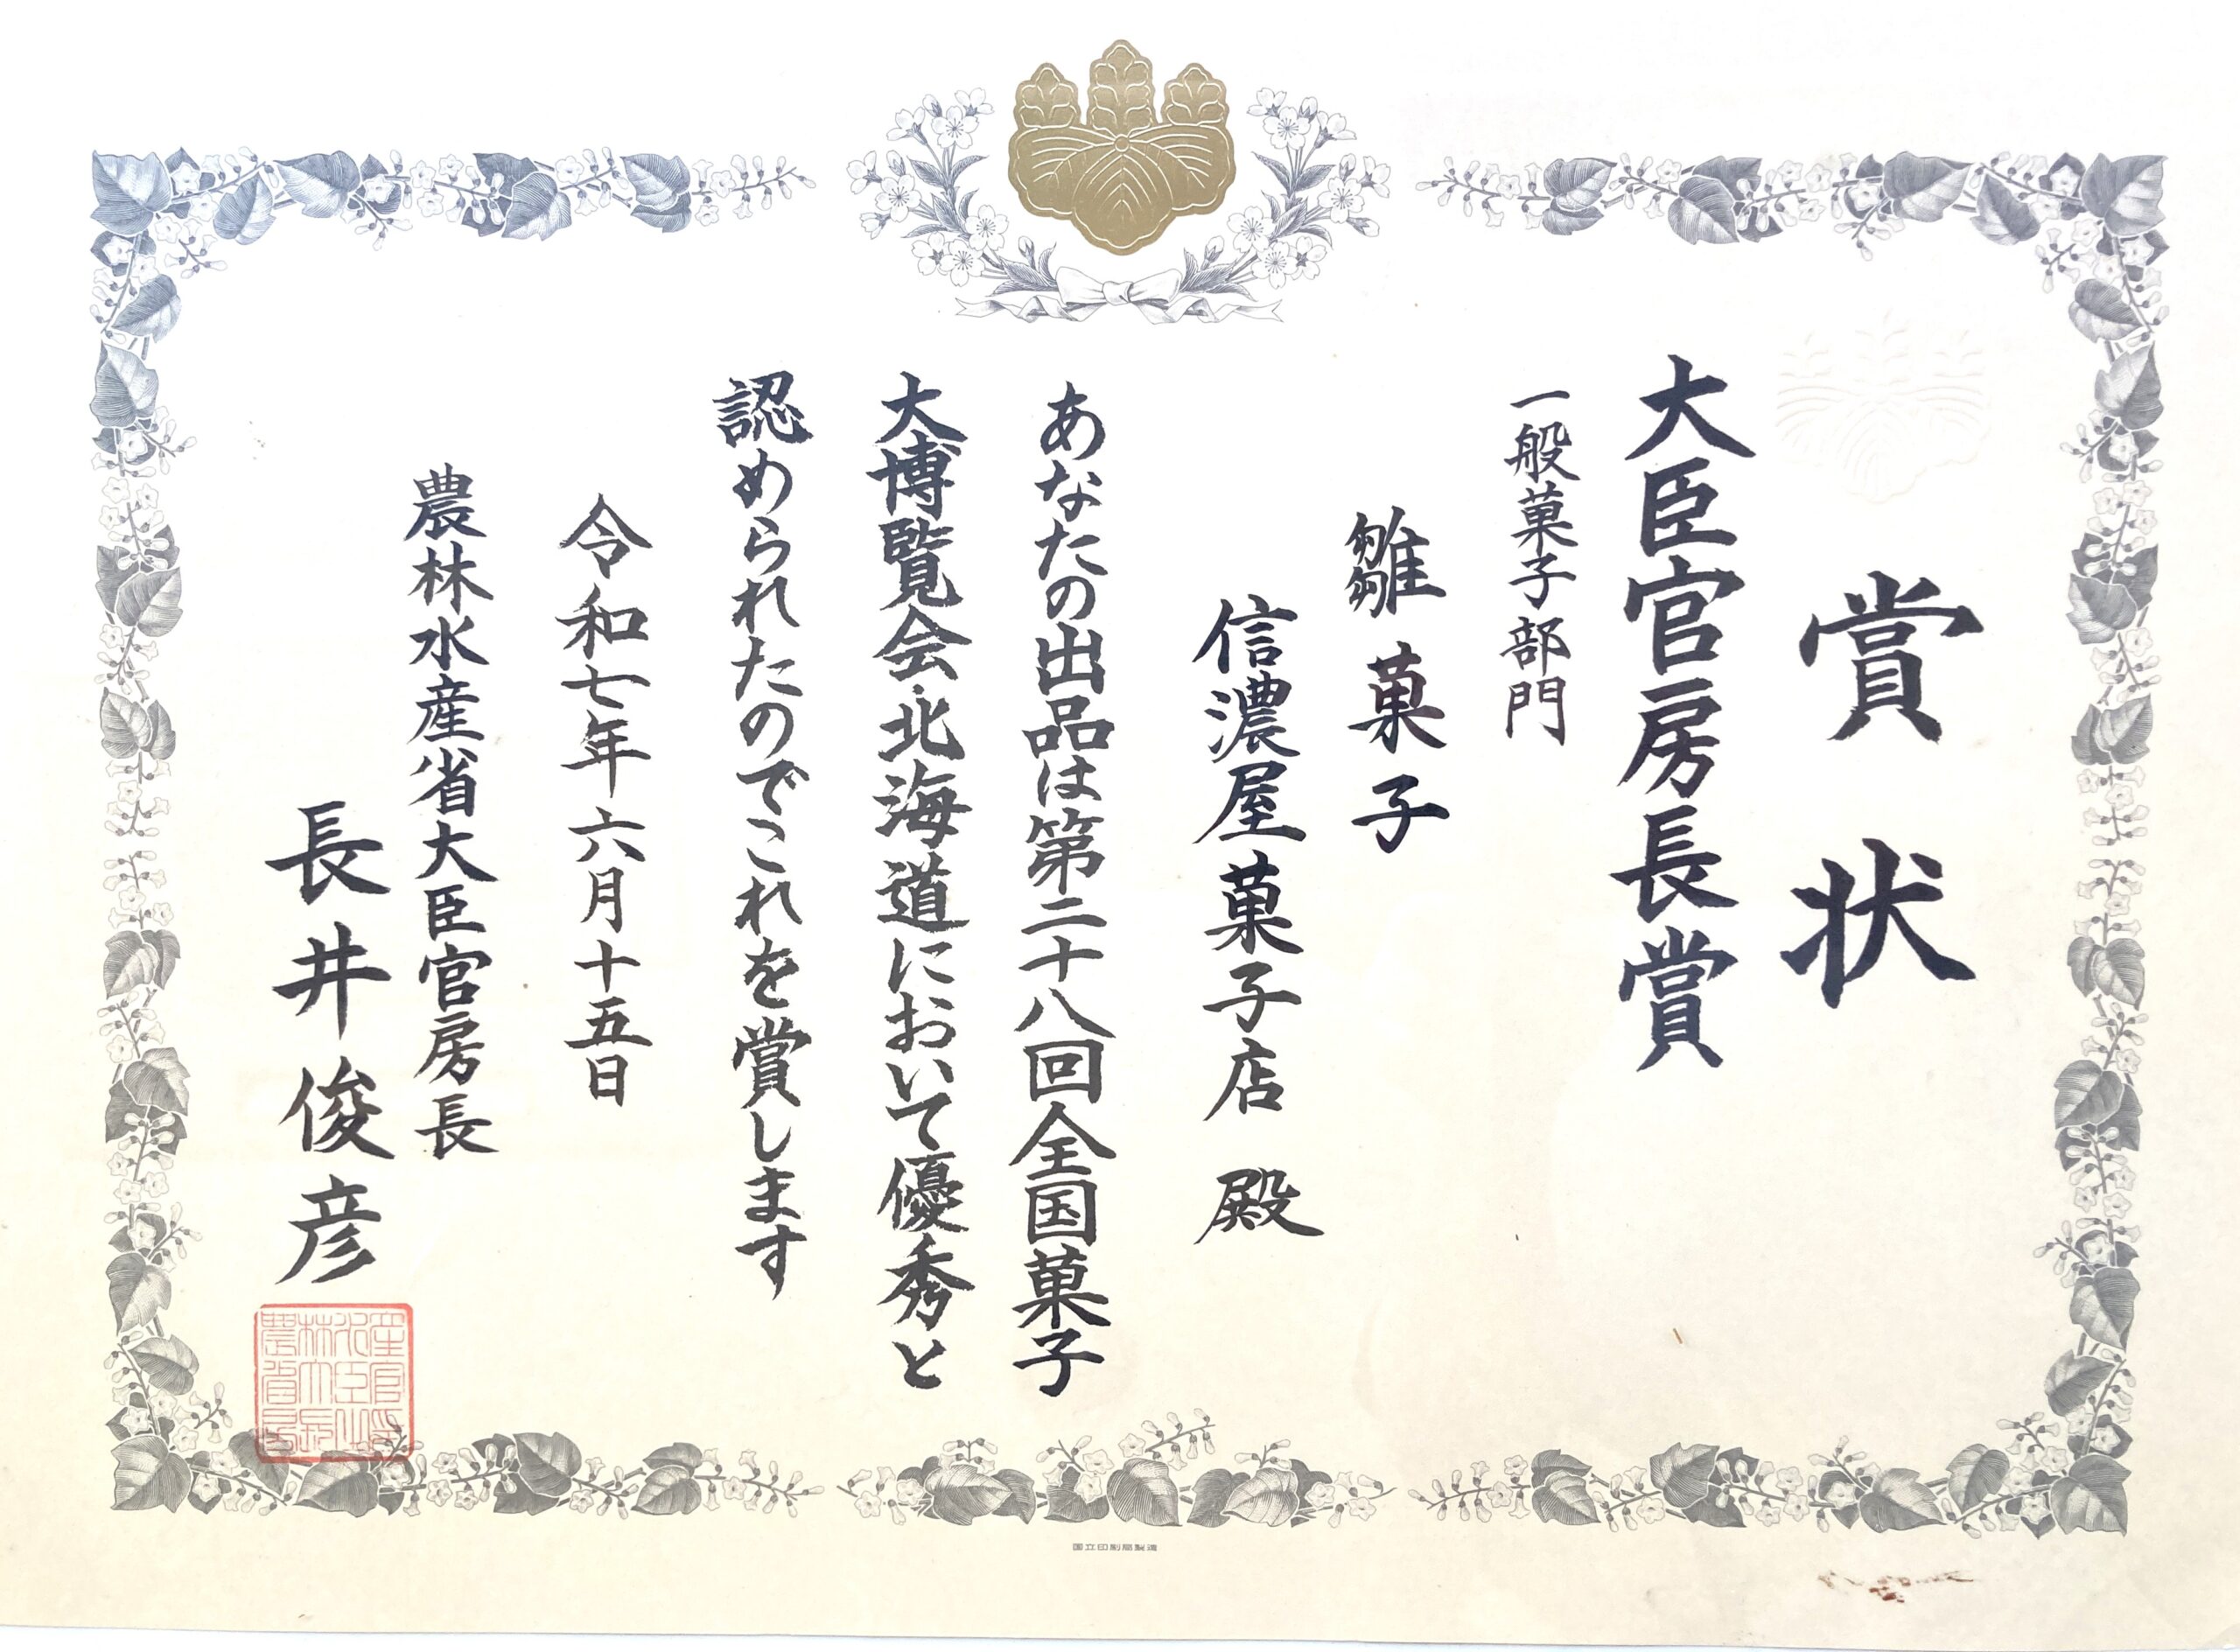 賞状
大臣官房長賞
一般菓子部門
雛菓子
信濃屋菓子店 殿
あなたの出品は第二十八回全国菓子
大博覧会・北海道において優秀と
認められたのでこれを賞します
令和七年六月十五日
農林水産省大臣官房長
長井俊彦
農林水産省大臣官房長之印
国立印刷局製造